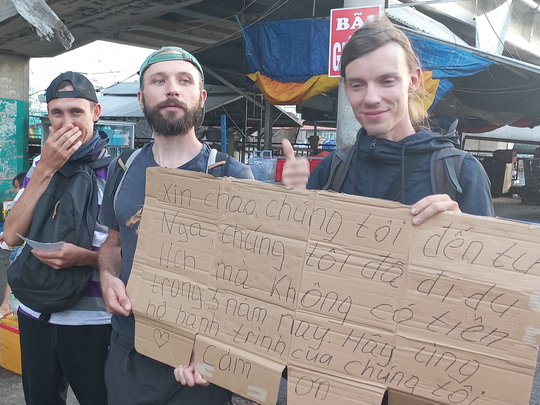 BÃI
Xin chào chúng tôi đến từ
Nga chúng tôi đã đi du
lịch mà không có tiền
trong 5 năm nay. Hãy ủng
hộ hành trình của chúng tôi
Cảm ơn